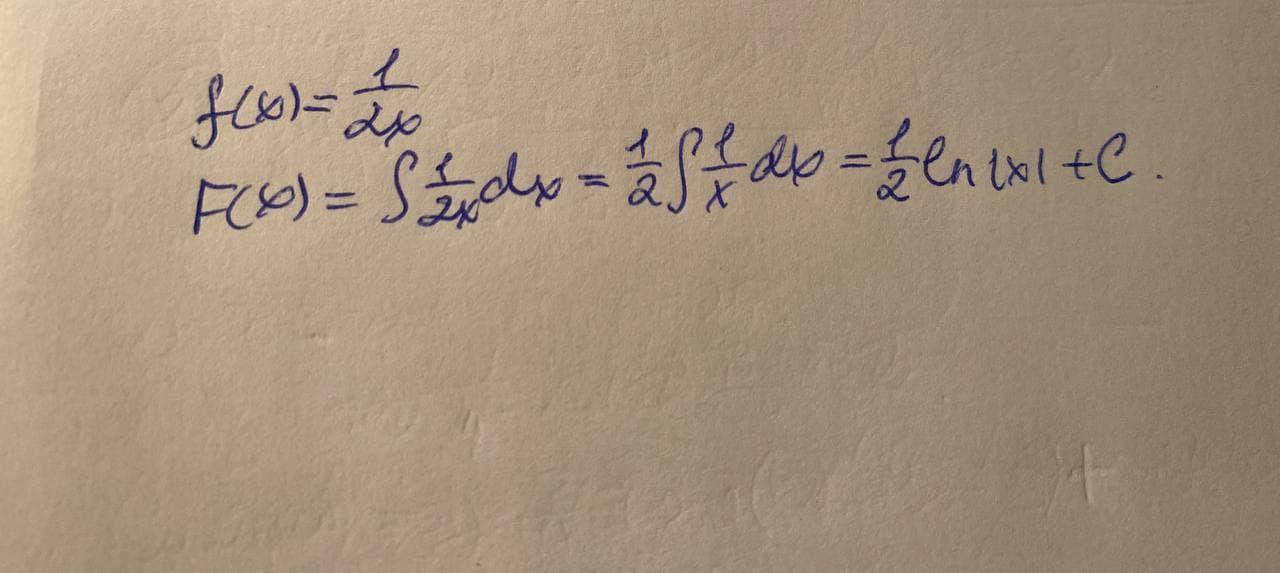 f(x) = 1/2x
F(x) = ∫ 1/2x dx = 1/2 ∫ 1/x dx = 1/2 ln |x| + C.